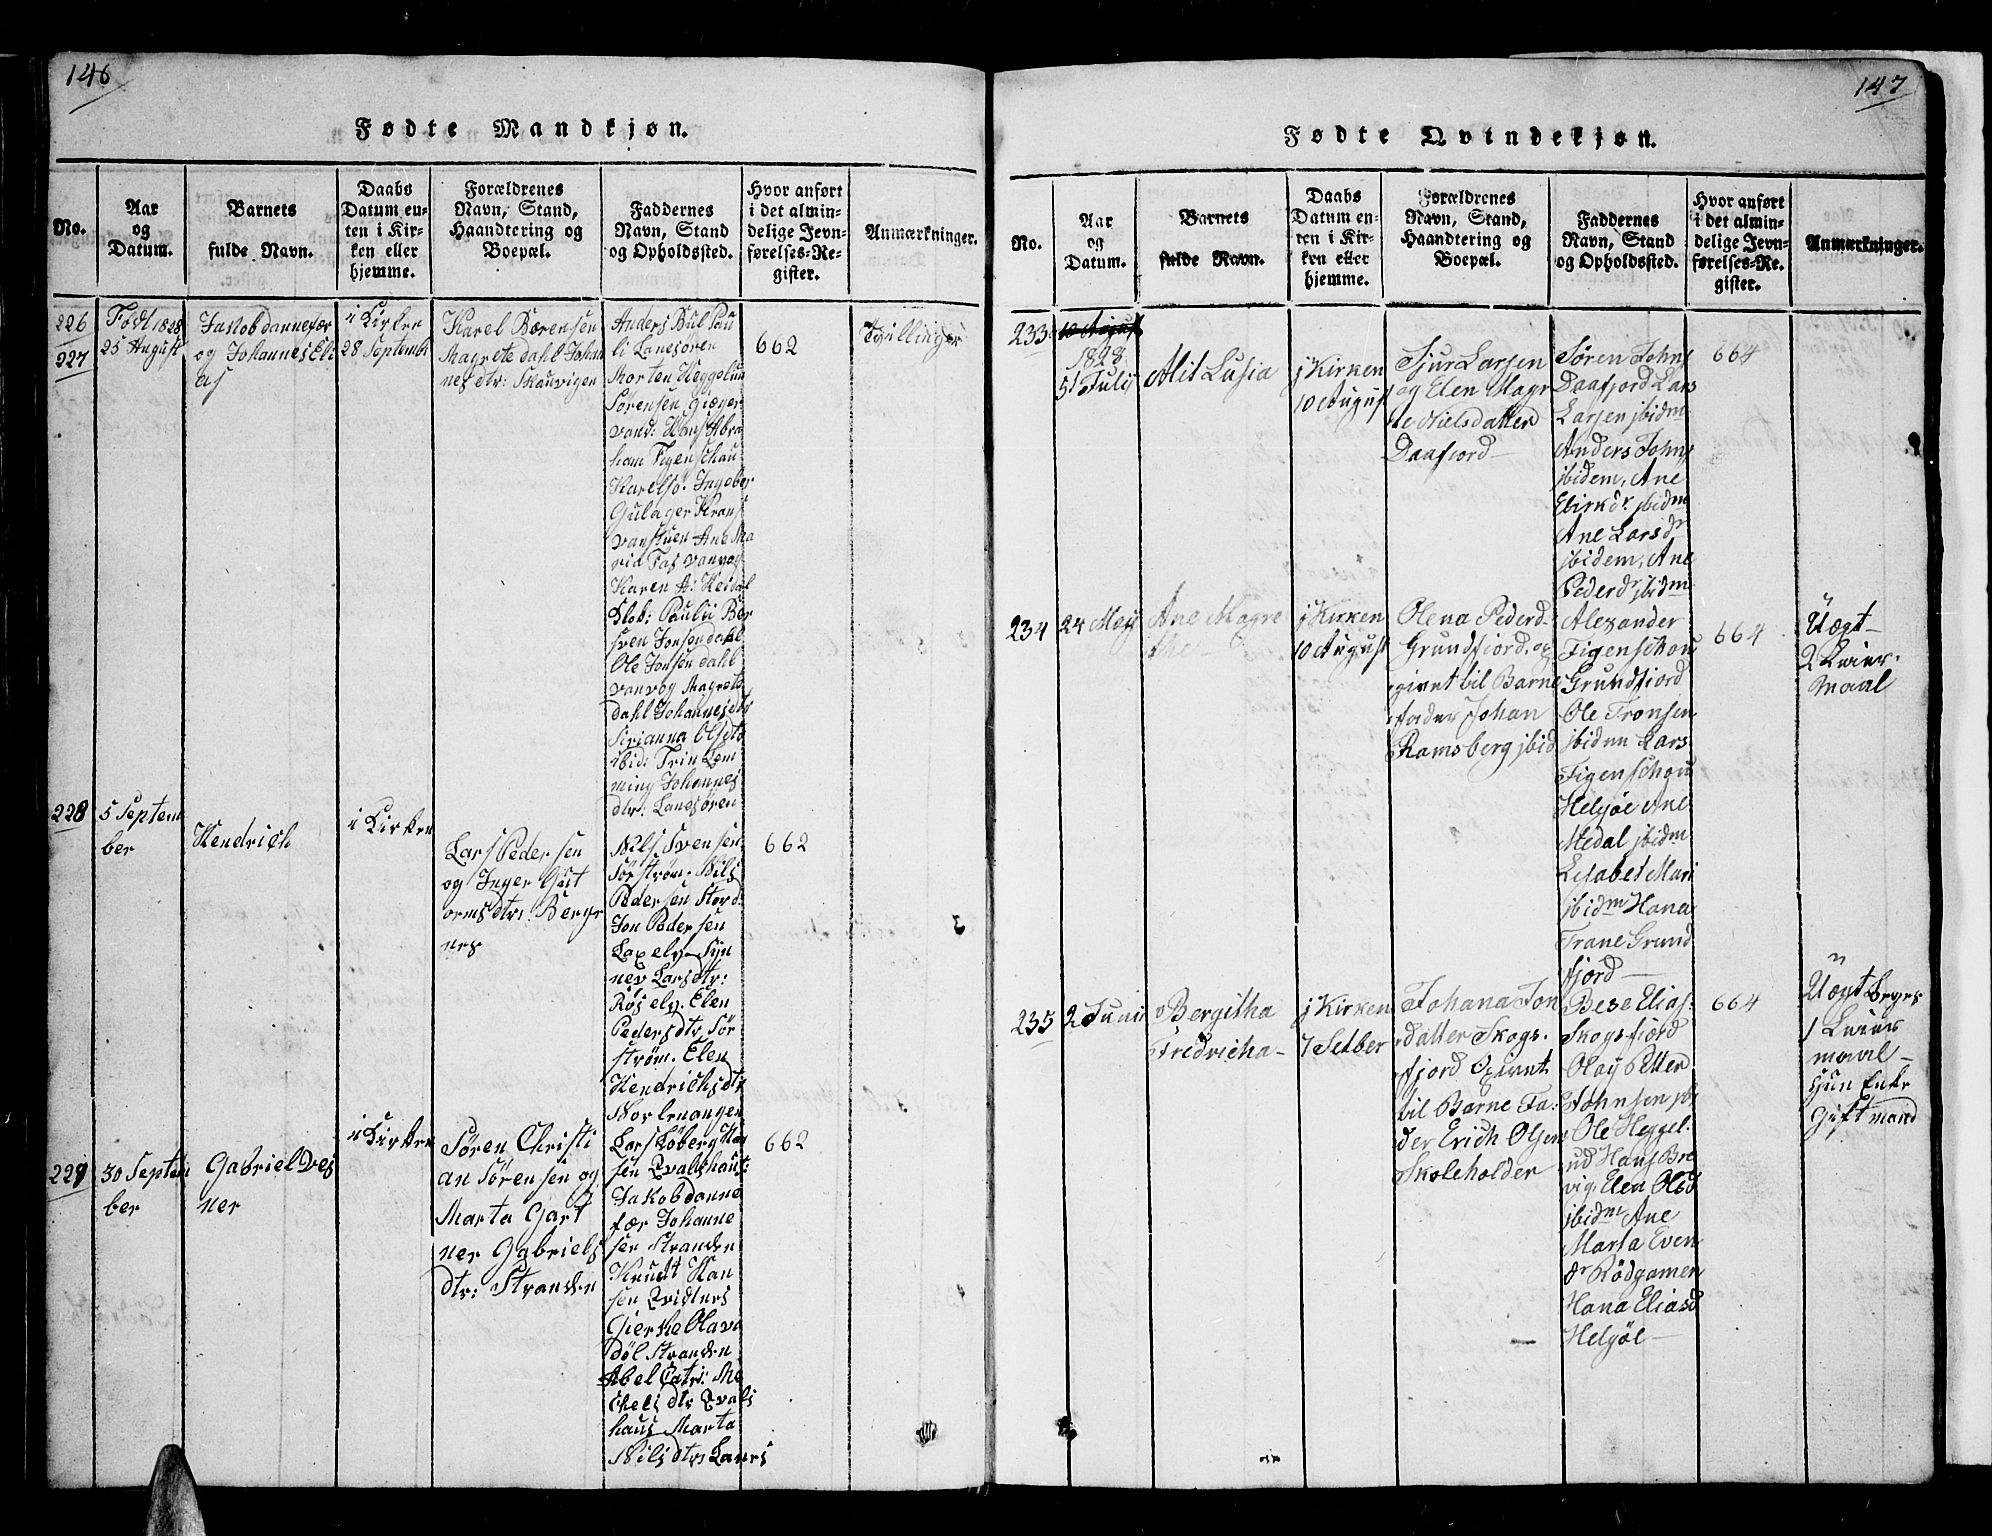 146
Fødte Mandkjøn.
No.
Aar
og
Datum.
Barnets
fulde Navn.
Daabs
Datum en-
ten i Kir-
ken eller
hjemme.
Forældrenes
Navn, Stand,
Haandtering og
Boepæl.
Faddernes
Navn, Stand
og Opholdssted.
Hvor anført
i det almin-
delige Jevn-
førelses-Re-
gister.
Anmærkninger.
226
227
Født 1828
25 August
Jakob dannefær
og Johannes Eli
as
i Kirken
28 Septembr
Karel Bærensen
Magrete dahl Johan
nes dtr: Skauvigen
Anders Bul Pau
li Lanesøren
Morten Heggelun
Sørensen giæver
vand: Hans Abra
ham Figenschau
Karelsø. Ingeber
Gulager Krans
Ane Ma
ria Fas vanvog
Karen A: Heidal
Skob: Pauli Ber
sven Jonsen dahl
Ole Jonsen dahl
vanvog Magrete
dahl Johannesdtr
Sirianna Olsdtr
ibid: Trin Lem
ming Johannes
dtr: Lanesøren
662
Tvillinger
228
5 Septem
ber
Hendrich
i Kirken
Lars Peder sen
og Inger Gut
ormsdtr: Berge
nes
Nils Svensen
Sørstrøm. Nils
Pedersen Stord
Jon Pedersen
Laxelv. Syn
nev Larsdtr:
Røselv. Elen
Pedersdtr Sør
strøm. Elen
Hendrichsdtr
Norlenangen
662
229
30 Septem
ber
Gabriel Wes
ner
i Kirken
Søren Christi
an Sørensen og
Marta Gart
ner Gabriels
dtr: Stranden
Lars Løberg Han
sen Qvalshaus:
Jakob danne
fær Johanne
sen Stranden
Knudt Han
sen Qvitnes
Gierke Olava
døl Stranden
Abel Catr: Me
chels dtr Qvals
haus Marta
Nils dtr: Lanes
662
147
Fødte Qvindekjøn.
No.
Aar
og
Datum.
Barnets
fulde Navn.
Daabs
Datum en-
ten i Kir-
ken eller
hjemme.
Forældrenes
Navn, Stand,
Haandtering og
Boepæl.
Faddernes
Navn, Stand
og Opholdssted.
Hvor anført
i det almin-
delige Jevn-
førelses-Re-
gister.
Anmærkninger.
233
10 August
1828
51 July
Alit Lusia
j Kirken
10 August
Sjur Larsen
og Elen Magr
te Nielsdatter
Daafjord
Søren Johns
Daafjord Lars
Larsen jbidm
Anders Johns
jbidem, Ane
Eirkdr. jbidm
Ane Larsdr
jbidem, Ane
Pederdr jbidm
664
234
24 Mey
Ane Magre
the
j Kirken
10 August
Olena Pederd
Grundfjord, op
givnt til Barne
fader Johan
Ramsberg jbid
Alexander
Figenschou
Grundfjord
Ole Tronsen
jbidm Lars
Figenschou
Helgøe Ane
Medal jbidm
Elisabet Mari
jbidm Hana
Trane Grund
fjord
664
Uægt
2 Leier-
maal
235
2 Juni
Bergitha
Fredricha
j Kirken
7 Setber
Johana Jon
datter Skogs-
fjord Opgivnt
til Barne Fa-
der Erich Olsen
Skoleholder
Bese Elias-
Skogsfjord
Olay Petter
Johnsen jbi
Ole Heggel-
ud Hans Bre
vig. Elen Olsd
jbidm Ane
Marta Even
dr Rødgamen
Hana Eliasd
Helgøe
664
Uægt beges
1 Leier
maal
Hun Enke
Gift mand